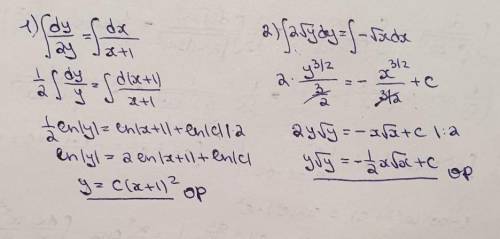 1) ∫ dy/2y = ∫ dx/x+1
1/2 ∫ dy/y = ∫ d(x+1)/x+1
1/2 ln|y| = ln|x+1| + ln|c| |·2
ln|y| = 2 ln|x+1| + ln|c|
y = c(x+1)² ОР
2) ∫ 2√y dy = ∫ -√x dx
2 · y^3/2 / 3/2 = - x^3/2 / 3/2 + c
2y√y = -x√x + c |:2
y√y = -1/2 x√x + c ОР